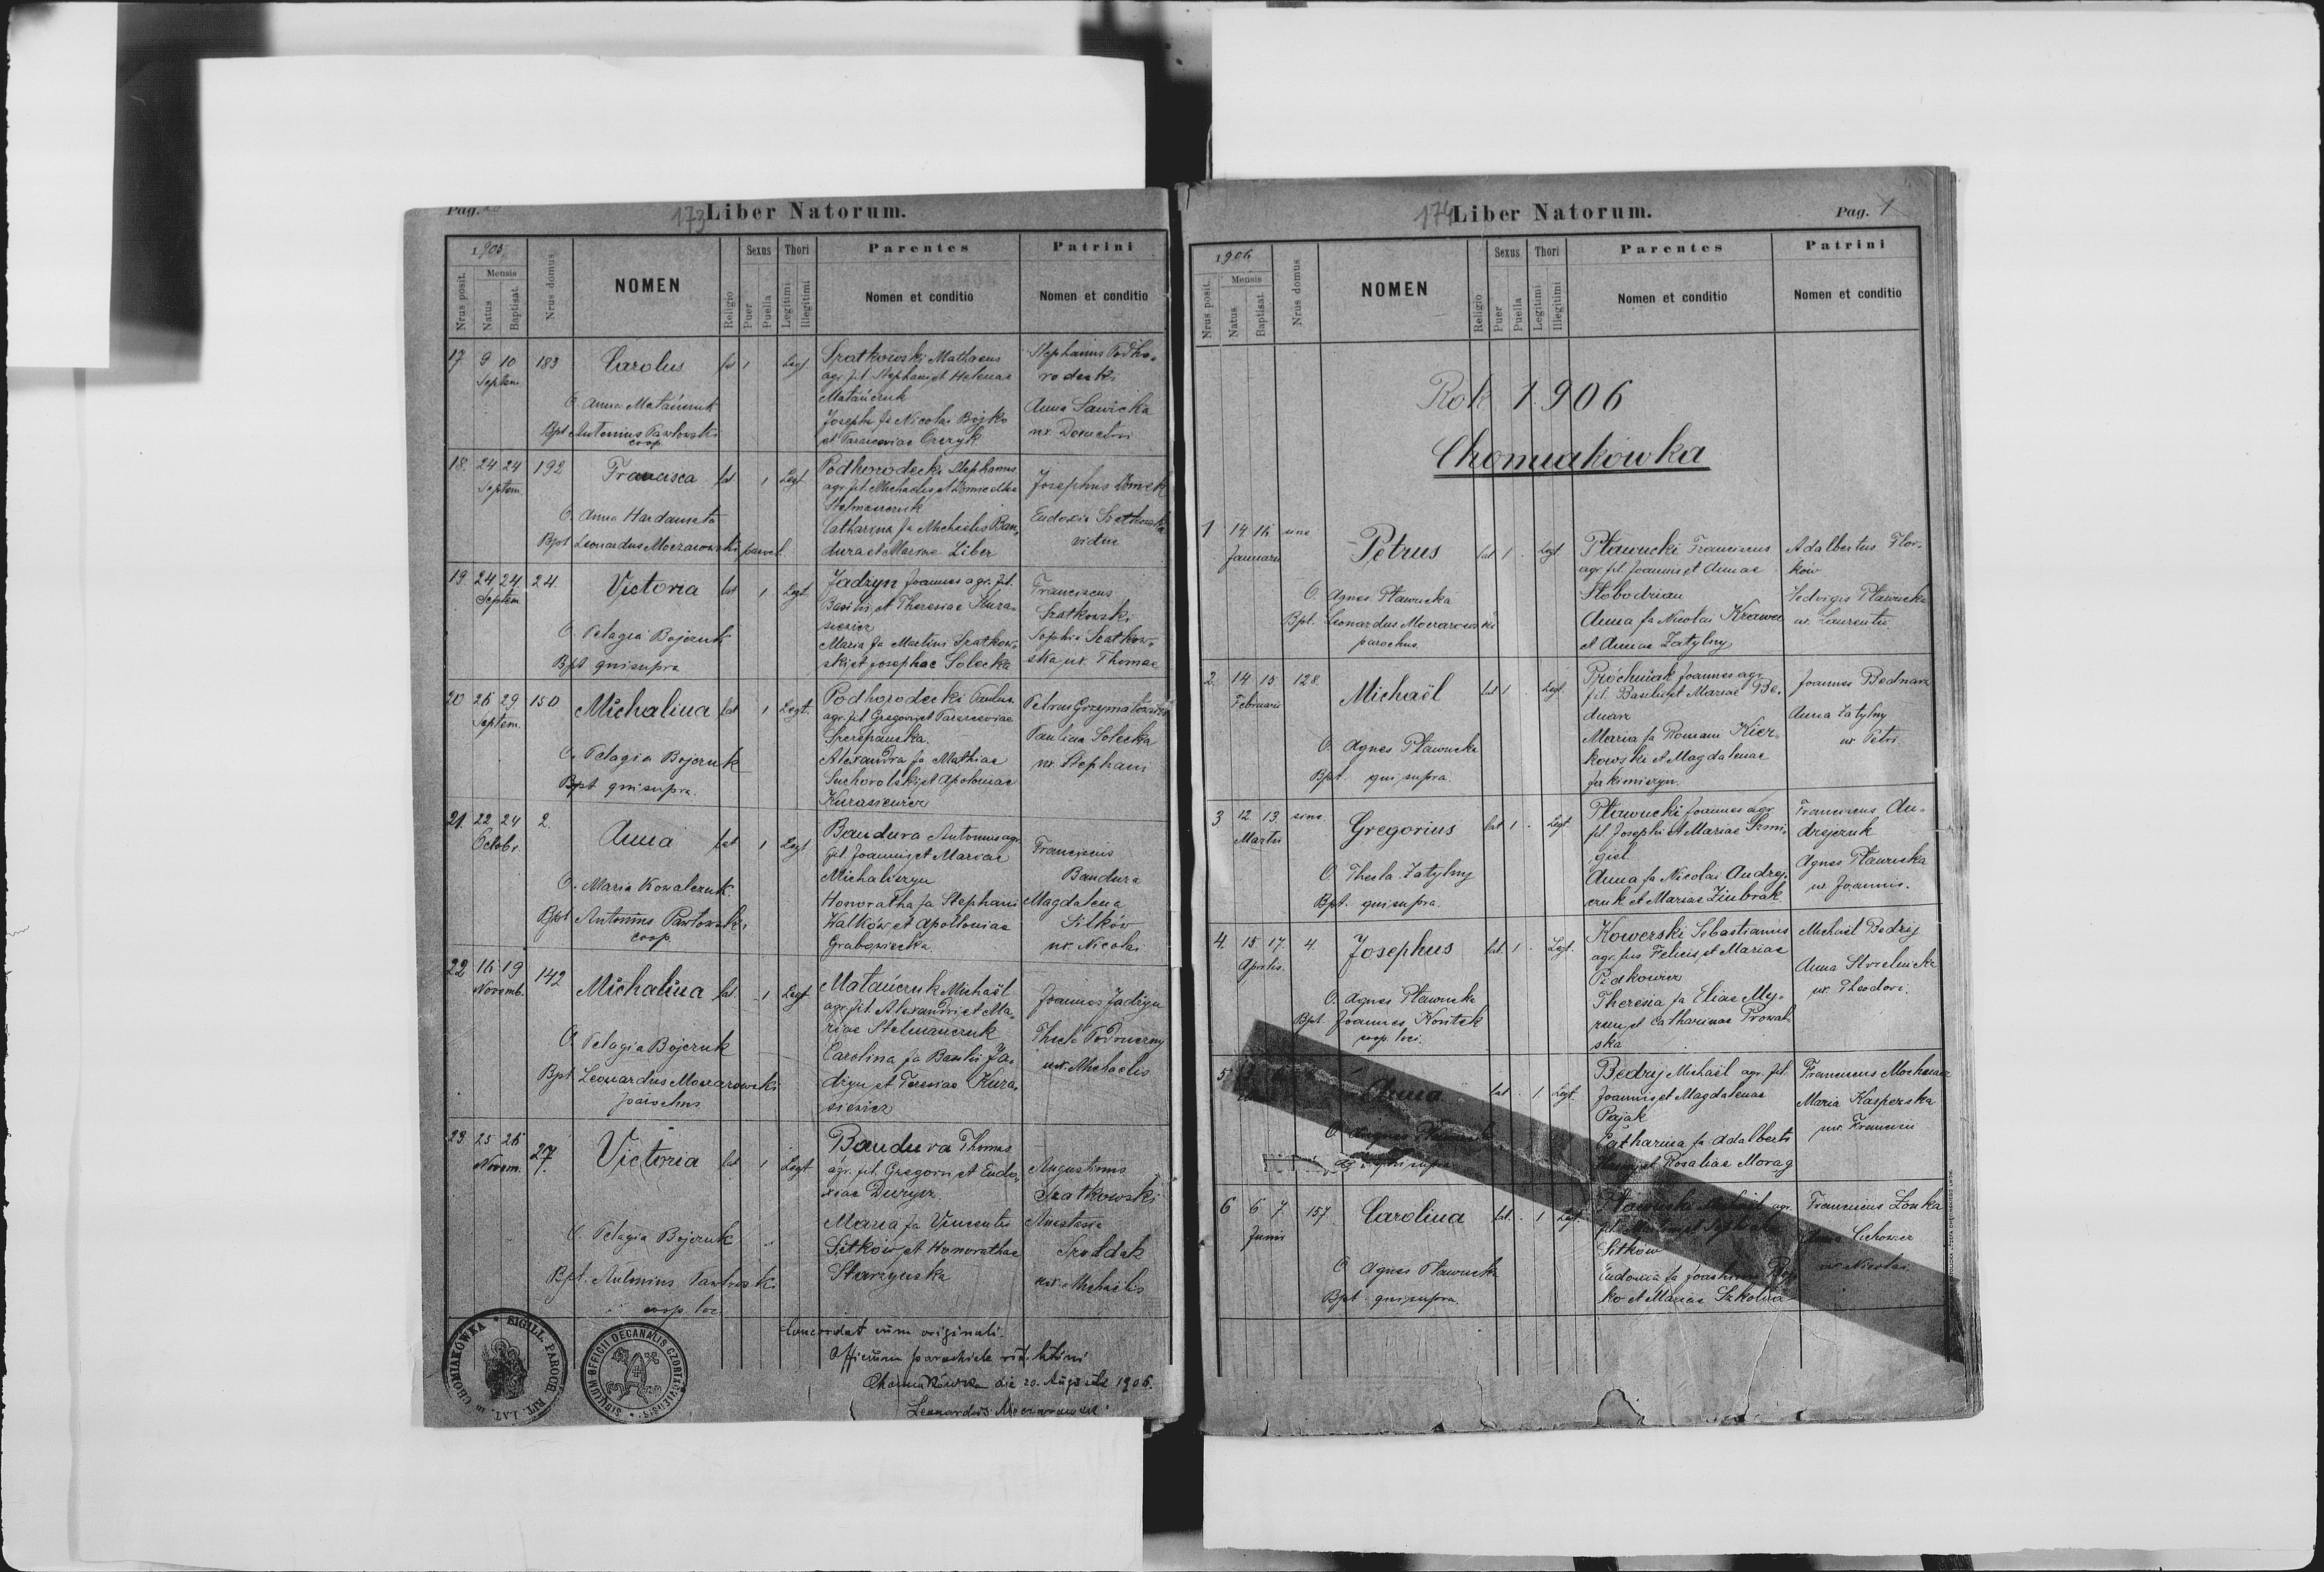 Pag.
173 Liber Natorum.
1905
Nrus posit.
Mensis
Natus
Baptisat.
Nrus domus
NOMEN
Religio
Sexus
Puer
Puella
Thori
Legitimi
Illegitimi
Parentes
Nomen et conditio
Patrini
Nomen et conditio
17 9 10 183 Carolus lat 1 Leg
Septem
Szatkowski Mathaeus
agr. fil. Stephani et Helenae
Matańczuk
Josepha fa Nicolai Bojko
et Parasceviae
Stephanus Podho-
rodecki
Anna Sawicka
ux. Demetri
O. Anna Matańczuk
Bpt Antonius Pawłowski
coop.
18. 24 24 192 Francisca lat 1 Legt
Septem
Podhorodecki Stephanus
agr. fil. Michaelis et
Stelmaszczuk
Catharina fa Michaelis Ban-
dura et Mariae Liber
Josephus
Eudoxia Szatkowska
vidue
O. Anna
Bpt Leonardus Moczarowski paroch.
19. 24 24 24. Victoria lat 1 Legt
Septem
Jadzyn Joannes agr. fil.
Basilii et Theresiae Kura-
siewicz
Maria fa Martini Szatkow-
ski et Josephae Solecka
Franciscus
Szatkowski
Sophia Szatkow-
ska ux. Thomae
O. Pelagia Bojczuk
Bpt qui supra
20 26 29 150 Michalina lat 1 Legt.
Septem.
Podhorodecki Paulus
agr. fil. Gregorii et Parasceviae
Szczepańska.
Alexandra fa Mathiae
Suchorolski et Apoloniae
Kurasiewicz
Petrus
Paulina Solecka
ux. Stephani
O. Pelagia Bojczuk
Bpt qui supra.
21. 22 24 2. Anna lat 1 Legt
Octobr.
Bandura Antonius agr.
fil. Joannis et Mariae
Michaliszyn
Honoratha fa Stephani
Walków et Apolloniae
Grabowiecka
Franciscus
Bandura
Magdalena
Sitków
ux. Nicolai
O. Maria Kowalczuk
Bpt Antonius Pawłowski
coop
22 16 19 142 Michalina lat. 1 Legt
Novemb.
Matańczuk Michaël
agr. fil. Alexandri et Ma-
riae Stelmaszczuk
Carolina fa Basilii Ja-
dzyn et Teresiae Kura-
siewicz
Joannes Jadzyn
Thecla Podruczny
ux. Michaelis
O. Pelagia Bojczuk
Bpt. Leonardus Moczarowski
parochus
23 25 26 27. Victoria lat 1 Legt
Novem.
Bandura Thomas
agr. fil. Gregorii et Eudo-
xiae
Maria fa Vincentii
Sitków et Honorathae
Starzyńska
Augustinus
Szatkowski
Anastasia
ux. Michaelis
O. Pelagia Bojczuk
Bpt. Antonius Pawłowski
coop. loc.
Concordat cum originali.
Officium parochiale rit. latini
Chomiakówka die 20. Augusti 1906.
Leonardus Moczarowski
SIGILL. PAROCH. RIT. LAT. in CHOMIAKÓWKA
SIGILLUM OFFICII DECANALIS CZORTKOVIENSIS
174 Liber Natorum.
Pag. 1
1906
Nrus posit.
Mensis
Natus
Baptisat.
Nrus domus
NOMEN
Religio
Sexus
Puer
Puella
Thori
Legitimi
Illegitimi
Parentes
Nomen et conditio
Patrini
Nomen et conditio
Rok 1906
Chomiakówka
1 14 16 Petrus lat 1 Legt
Januarii
Pławucki Franciscus
agr. fil. Joannis et Annae
Słobodzian
Anna fa Nicolai Krawec
et Annae Zatylny
Adalbertus Flor-
ków
Hedvigis Pławucka
ux. Laurentii.
O. Agnes Pławucka
Bpt. Leonardus Moczarowski
parochus
2. 14 15 128. Michaël lat 1 Legt.
Februarii
Próchniak Joannes agr.
fil. Basilii et Mariae Be-
dnarz
Maria fa Romani Kier-
kowski et Magdalenae
Jakimiszyn.
Joannes Bednarz
Anna Zatylny
ux. Petri
O. Agnes Pławucka
Bpt. qui supra.
3 12 13. Gregorius lat 1 Legt.
Martii
Pławucki Joannes agr.
fil. Josephi et Mariae Szmi-
giel.
Anna fa Nicolai Andrej-
czuk et Mariae Zimbrak
Franciscus An-
drejczuk
Agnes Pławucka
ux. Joannis.
O Thecla Zatylny
Bpt. qui supra.
4. 15 17. 4. Josephus lat. 1 Legt.
Aprilis.
Kowerski Sebastianus
agr. fil Felicis et Mariae
Pidkowicz
Theresia fa Eliae
et Catharinae
ska
Michaël Bedrij
Anna Strzelnicka
ux. Theodori.
O. Agnes Pławucka
Bpt. Joannes Kontek
coop. loci.
5 Anna lat 1 Legt
Bedryj Michaël agr. fil.
Joannis et Magdalenae
Pająk
Catharina fa Adalberti
et Rosaliae Morąg
Franciscus
Maria Kasperska
ux. Francisci
O. Agnes Pławucka
qui supra
6 6 7 157 Carolina lat. 1 Legt.
Junii
Pławucki Michaël agr.
Sitków
Eudoxia fa
ko et Mariae Szkolna
Franciscus Łonka
ux. Nicolai
O Agnes Pławucka
Bpt. qui supra.